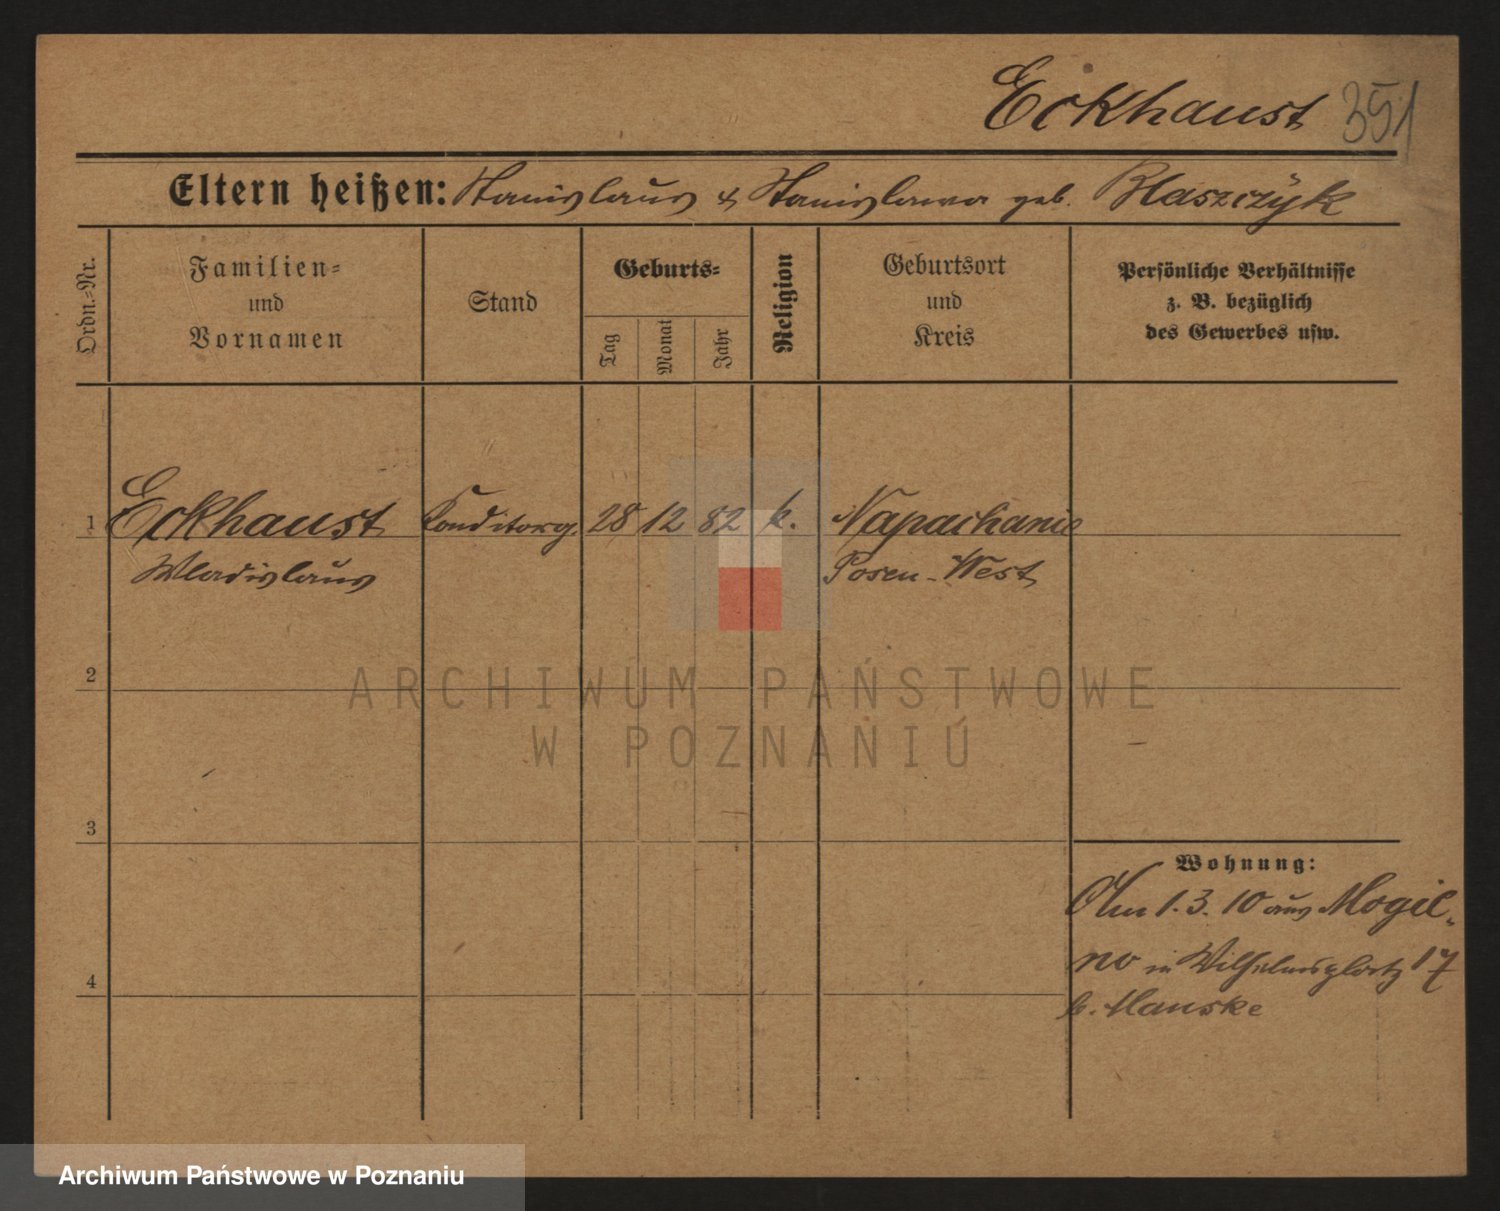 Eckhaust 351
Eltern heißen: Stanislaus & Stanislawa geb. Blaszczyk
Ordn.=Nr.
Familien=
und
Vornamen
Stand
Geburts=
Tag
Monat
Jahr
Religion
Geburtsort
und
Kreis
Persönliche Verhältnisse
z. B. bezüglich
des Gewerbes usw.
1 Eckhaust Konditorg. 28 12 82 k. Napachanie
Wladislaus Posen-West
2
ARCHIWUM PAŃSTWOWE
W POZNANIU
3
Wohnung:
Am 1. 3. 10 aus Mogil-
4 no in Wilhelmsplatz 17
b. Manske
Archiwum Państwowe w Poznaniu